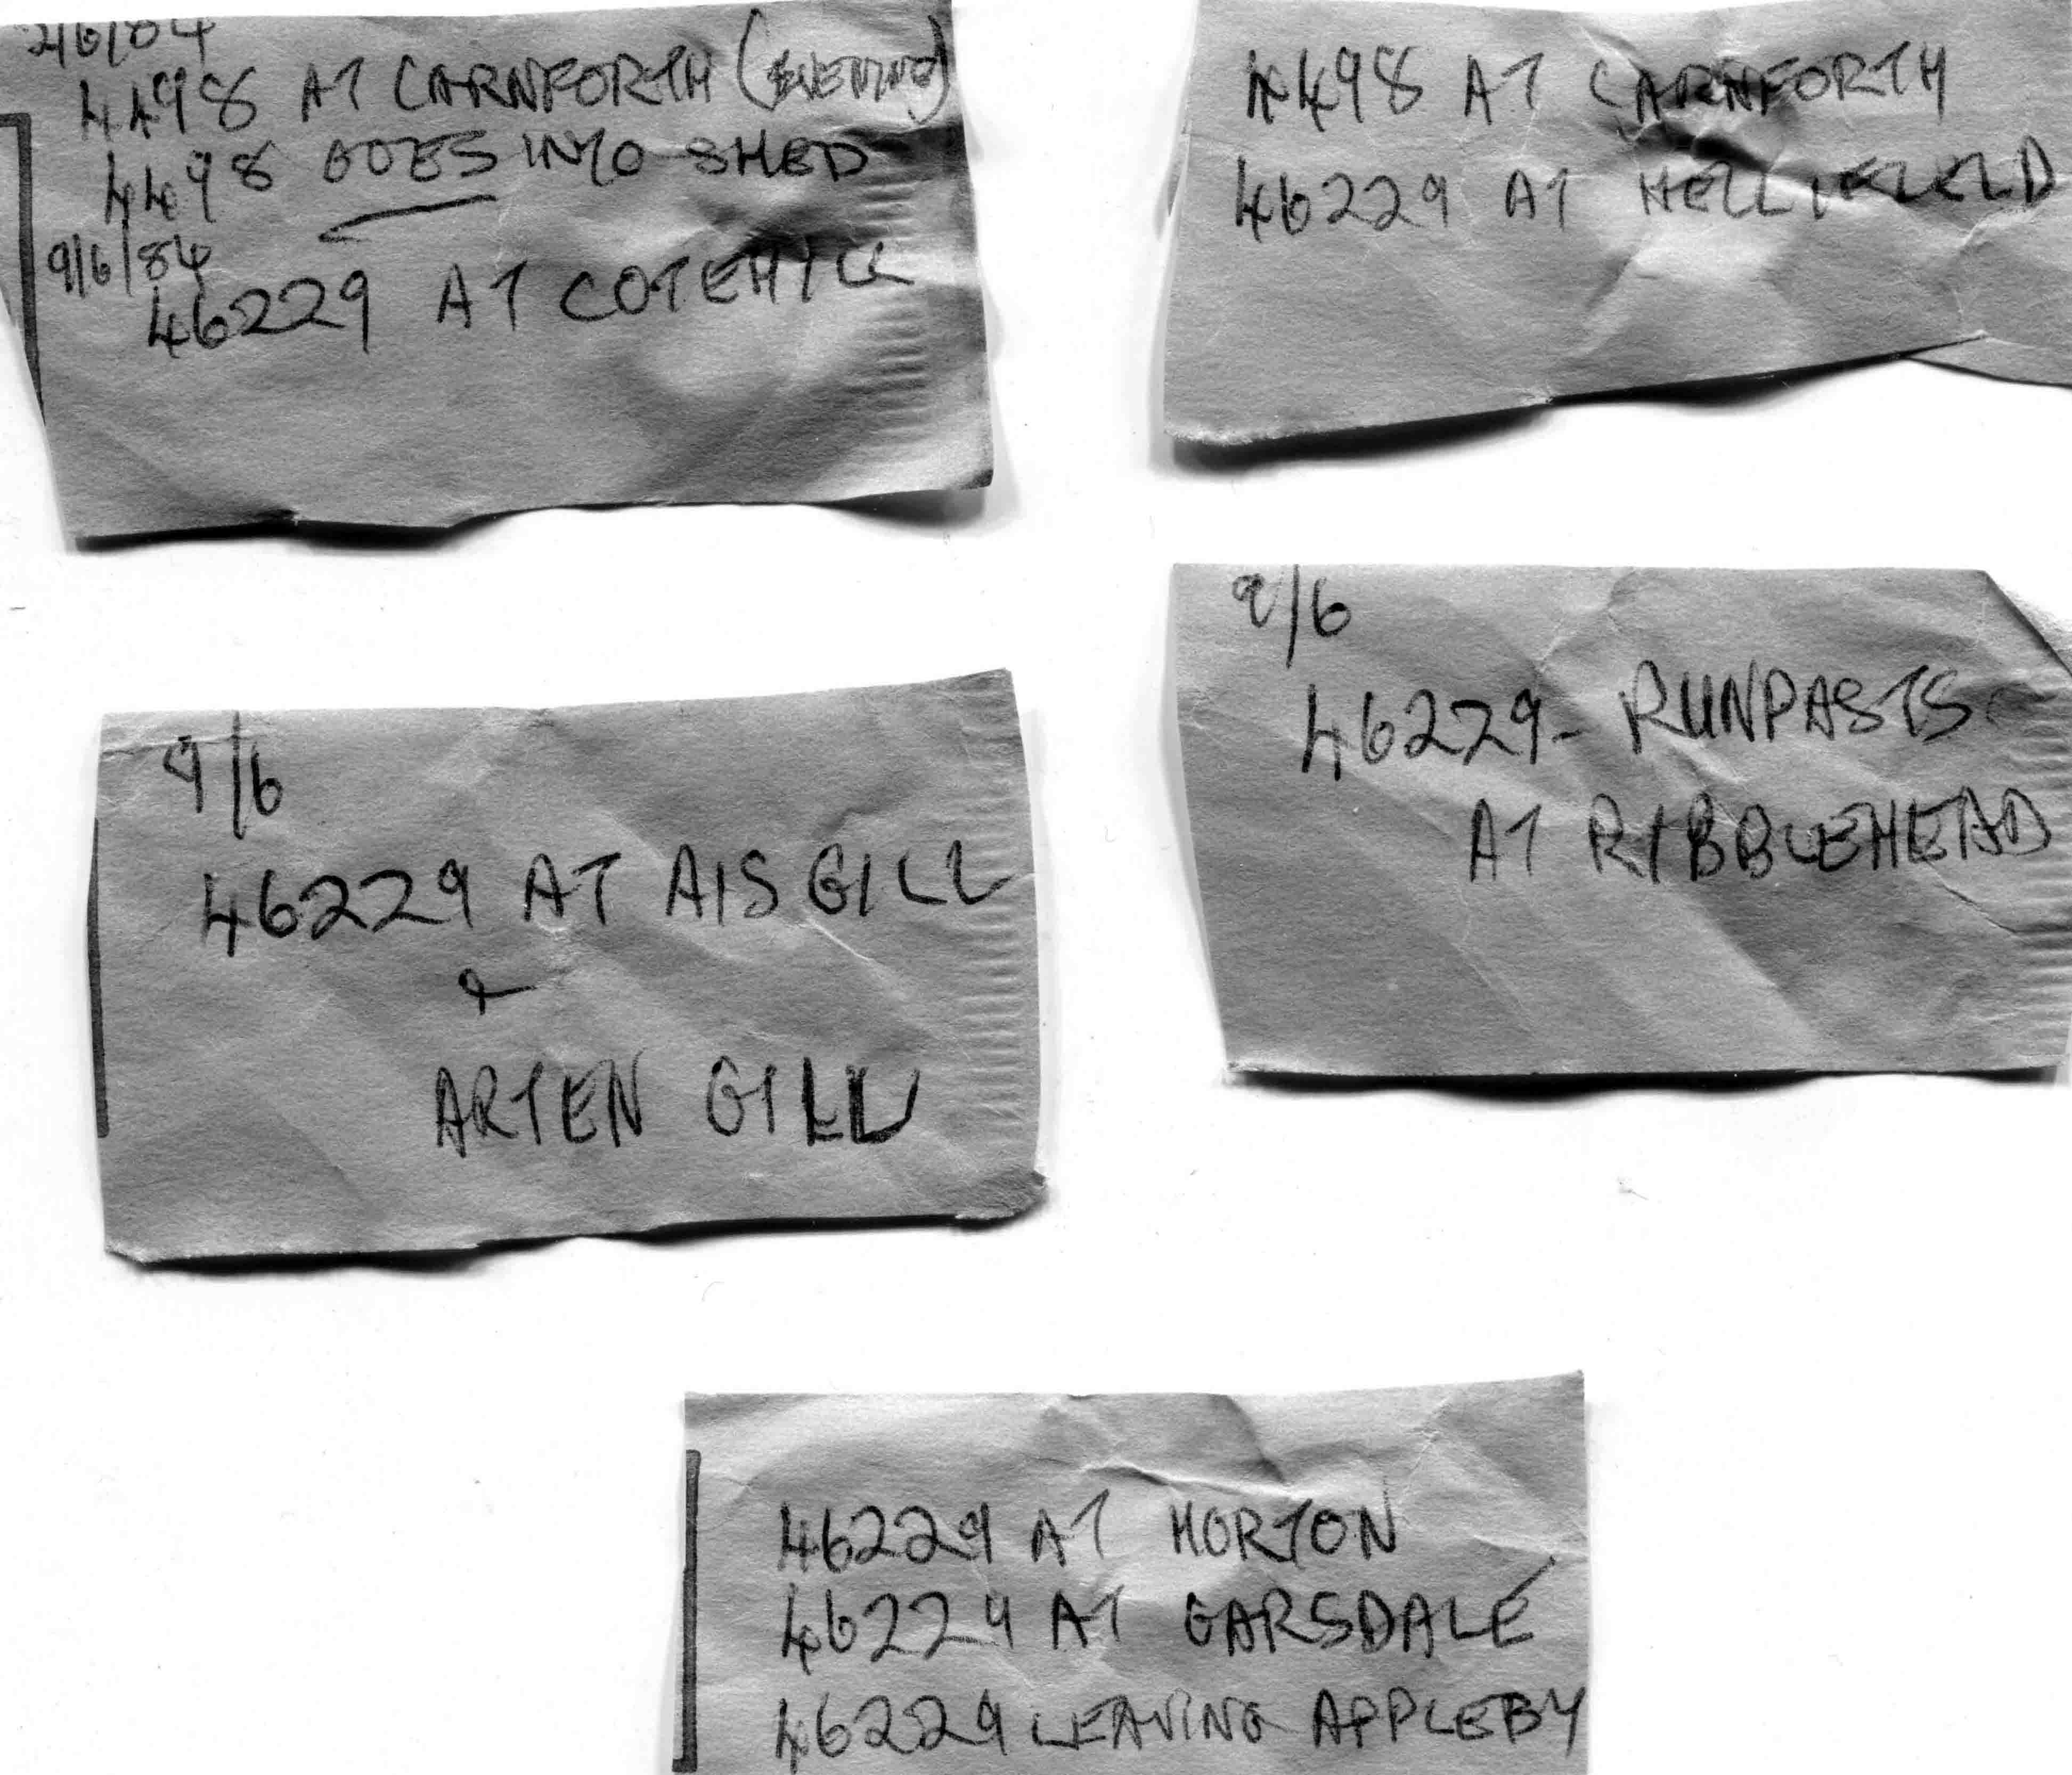 4498 AT CARNFORTH (EVENING)
4498 GOES INTO SHED
9/6/84
46229 AT COTEHILL
4498 AT CARNFORTH
46229 AT HELLIFIELD
9/6
46229 AT AIS GILL
&
ARTEN GILL
9/6
46229 - RUNPASTS
AT RIBBLEHEAD
46229 AT HORTON
46229 AT GARSDALE
46229 LEAVING APPLEBY